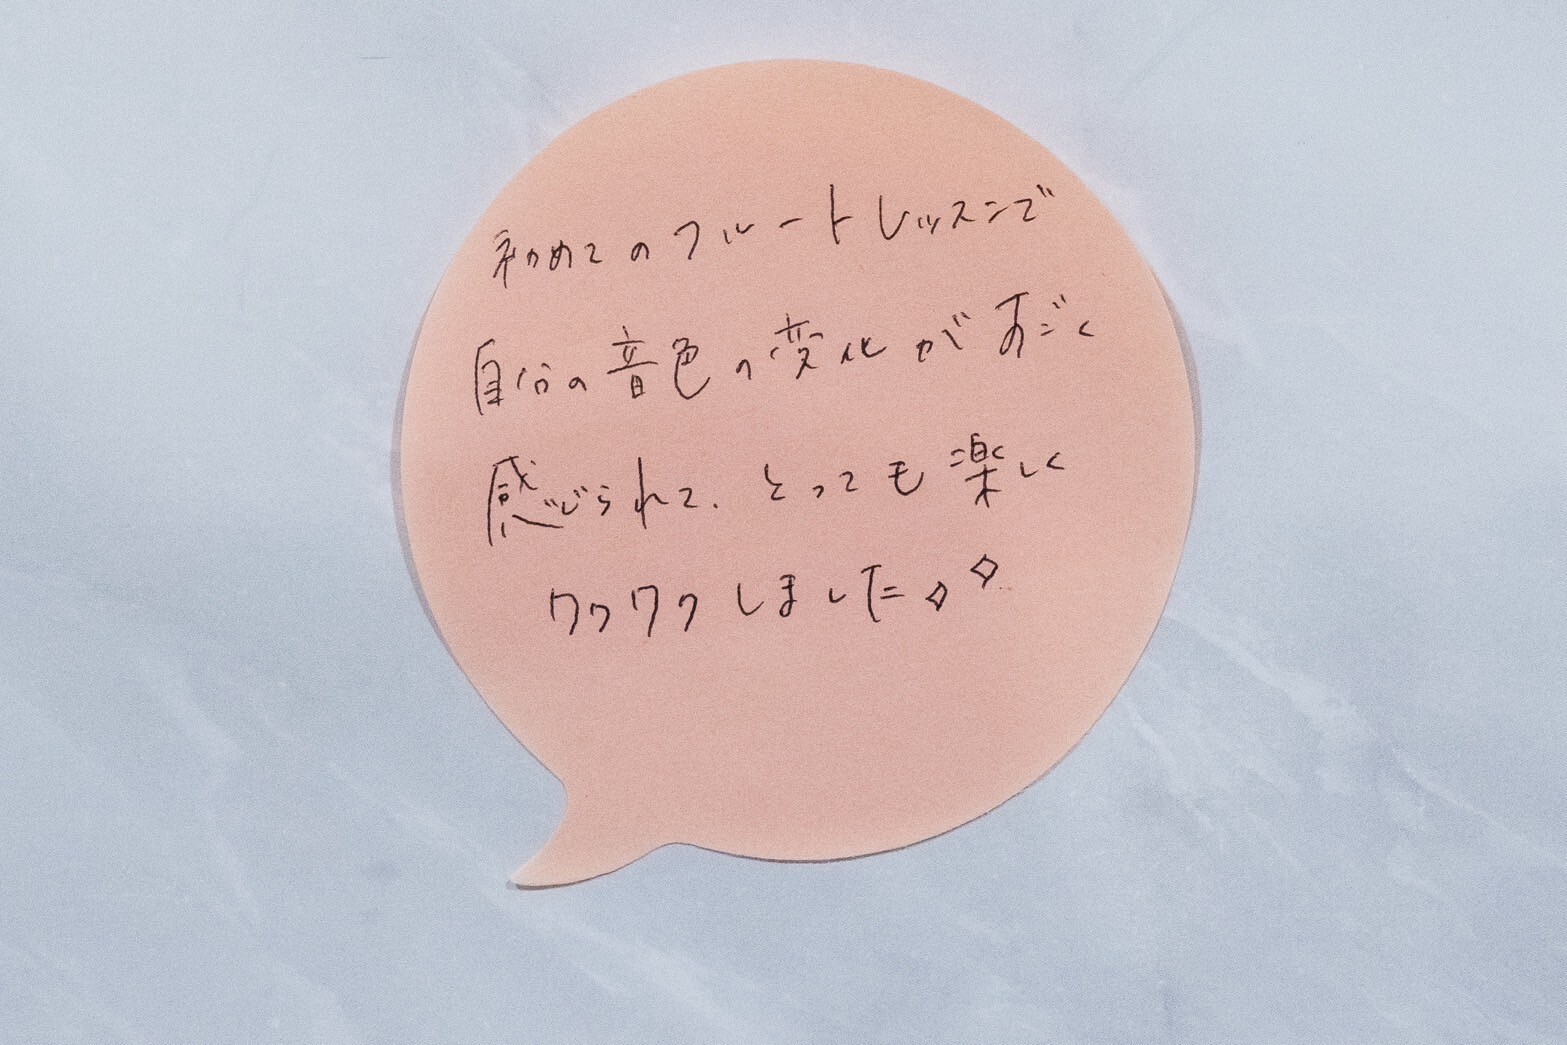 初めてのフルートレッスンで
自分の音色の変化がすごく
感じられて、とっても楽しく
ワクワクしました◇◇